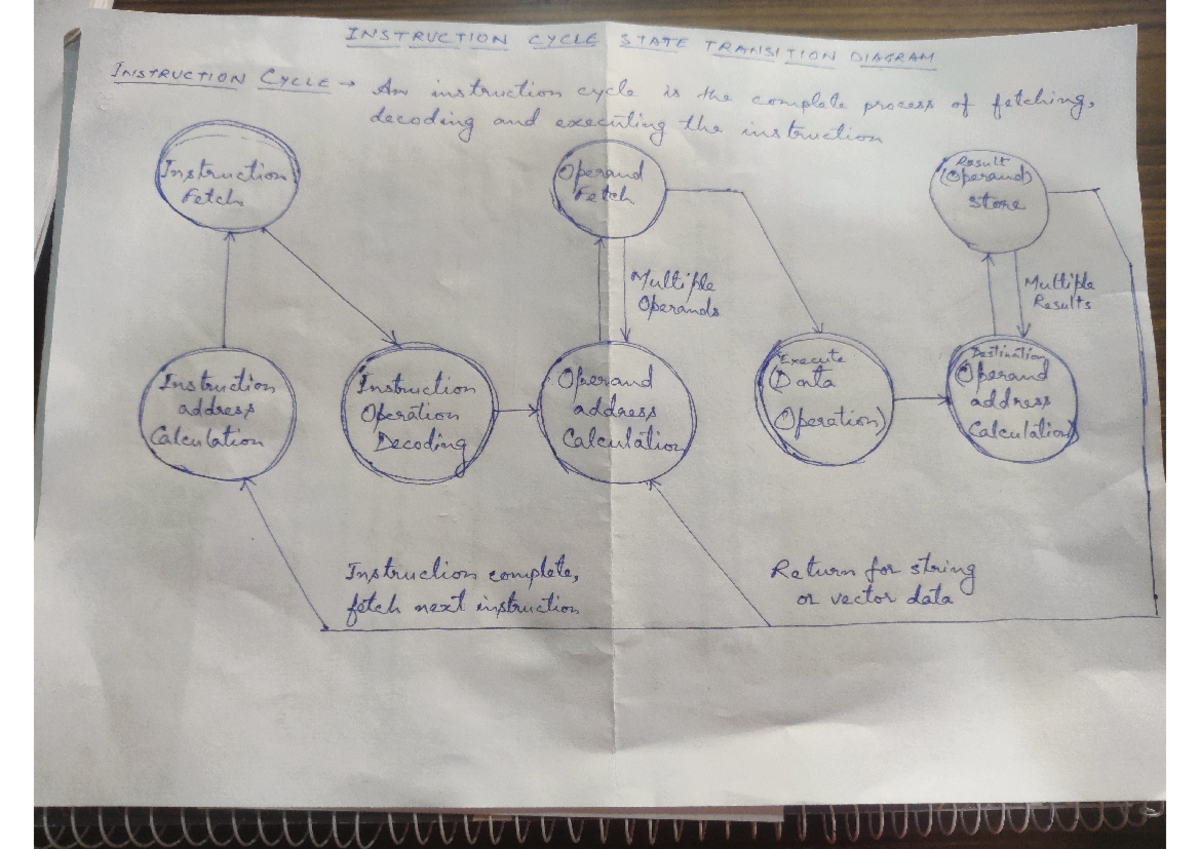 INSTRUCTION CYCLE STATE TRANSITION DIAGRAM
INSTRUCTION CYCLE → An instruction cycle is the complete process of fetching,
decoding and executing the instruction
Instruction
Fetch
Operand
Fetch
Result
(Operand)
Store
Multiple
Operands
Multiple
Results
Instruction
address
Calculation
Instruction
Operation
Decoding
Operand
address
Calculation
Execute
(Data
Operation)
Destination
(Operand
address
Calculation)
Instruction complete,
fetch next instruction
Return for string
or vector data